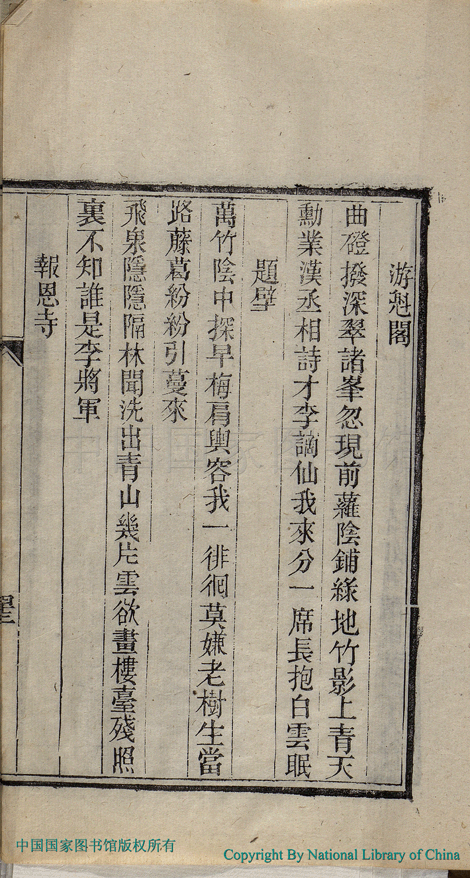 游魁閣
曲磴撥深翠諸峯忽現前蘿陰鋪綠地竹影上青天
勳業漢丞相詩才李謫仙我來分一席長抱白雲眠
題壁
萬竹陰中探早梅肩輿容我一徘徊莫嫌老樹生當
路藤葛紛紛引蔓來
飛泉隱隱隔林聞洗出青山幾片雲欲畫樓臺殘照
裏不知誰是李將軍
報恩寺
中国国家图书馆版权所有
Copyright By National Library of China